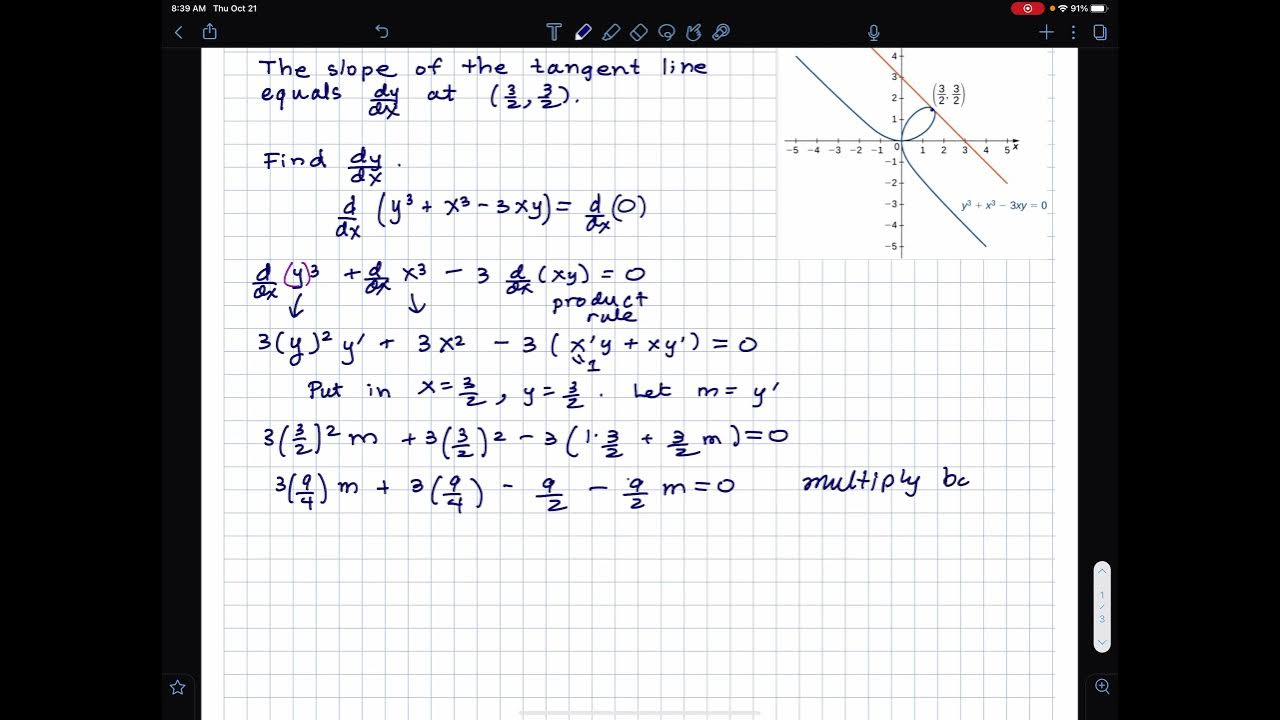 8:39 AM Thu Oct 21
91%
The slope of the tangent line
equals dy/dx at (3/2, 3/2).
Find dy/dx.
d/dx (y³ + x³ - 3xy) = d/dx (0)
d/dx (y)³ + d/dx x³ - 3 d/dx (xy) = 0
product
rule
3(y)² y' + 3x² - 3 (x'y + xy') = 0
1
Put in x = 3/2, y = 3/2. Let m = y'
3(3/2)² m + 3(3/2)² - 3(1·3/2 + 3/2 m) = 0
3(9/4) m + 3(9/4) - 9/2 - 9/2 m = 0 multiply bo
4
3
2
1
0
-5 -4 -3 -2 -1 1 2 3 4 5 x
-1
-2
-3
-4
-5
(3/2, 3/2)
y³ + x³ − 3xy = 0
1
/
3